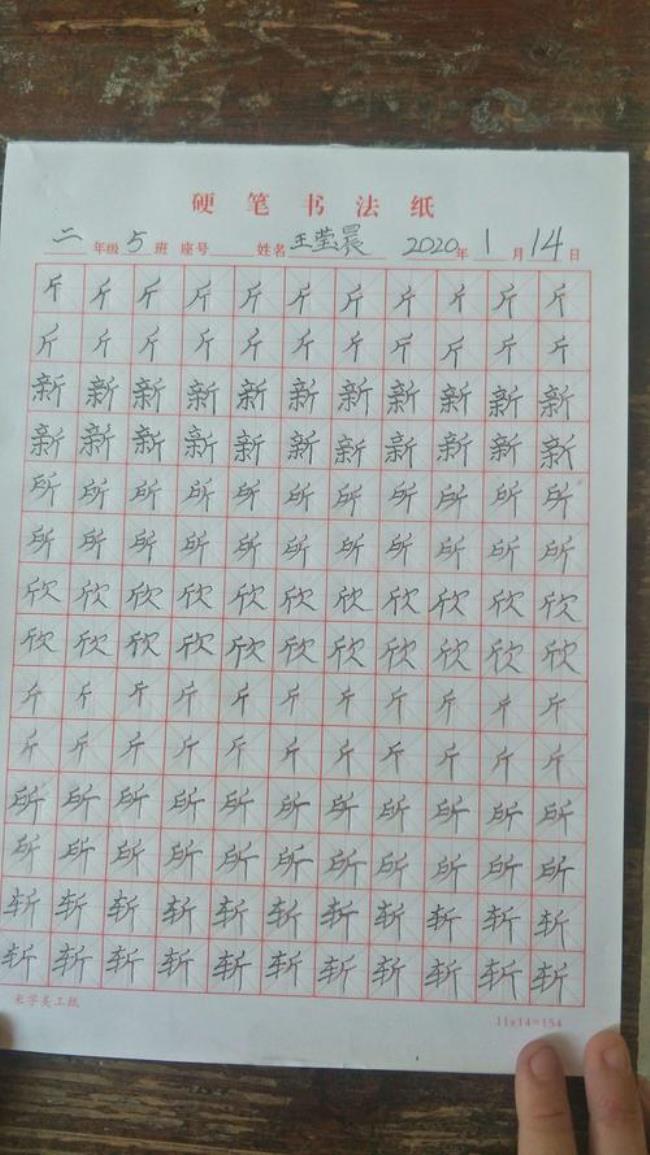 硬笔书法纸
二年级 5 班 座号 姓名 王莹晨 2020年 1 月 14 日
斤 斤 斤 斤 斤 斤 斤 斤 斤 斤 斤
斤 斤 斤 斤 斤 斤 斤 斤 斤 斤 斤
新 新 新 新 新 新 新 新 新 新 新
新 新 新 新 新 新 新 新 新 新 新
所 所 所 所 所 所 所 所 所 所 所
所 所 所 所 所 所 所 所 所 所 所
欣 欣 欣 欣 欣 欣 欣 欣 欣 欣 欣
欣 欣 欣 欣 欣 欣 欣 欣 欣 欣 欣
斤 斤 斤 斤 斤 斤 斤 斤 斤 斤 斤
斤 斤 斤 斤 斤 斤 斤 斤 斤 斤 斤
所 所 所 所 所 所 所 所 所 所 所
所 所 所 所 所 所 所 所 所 所 所
斩 斩 斩 斩 斩 斩 斩 斩 斩 斩 斩
斩 斩 斩 斩 斩 斩 斩 斩 斩 斩 斩
11x14=154